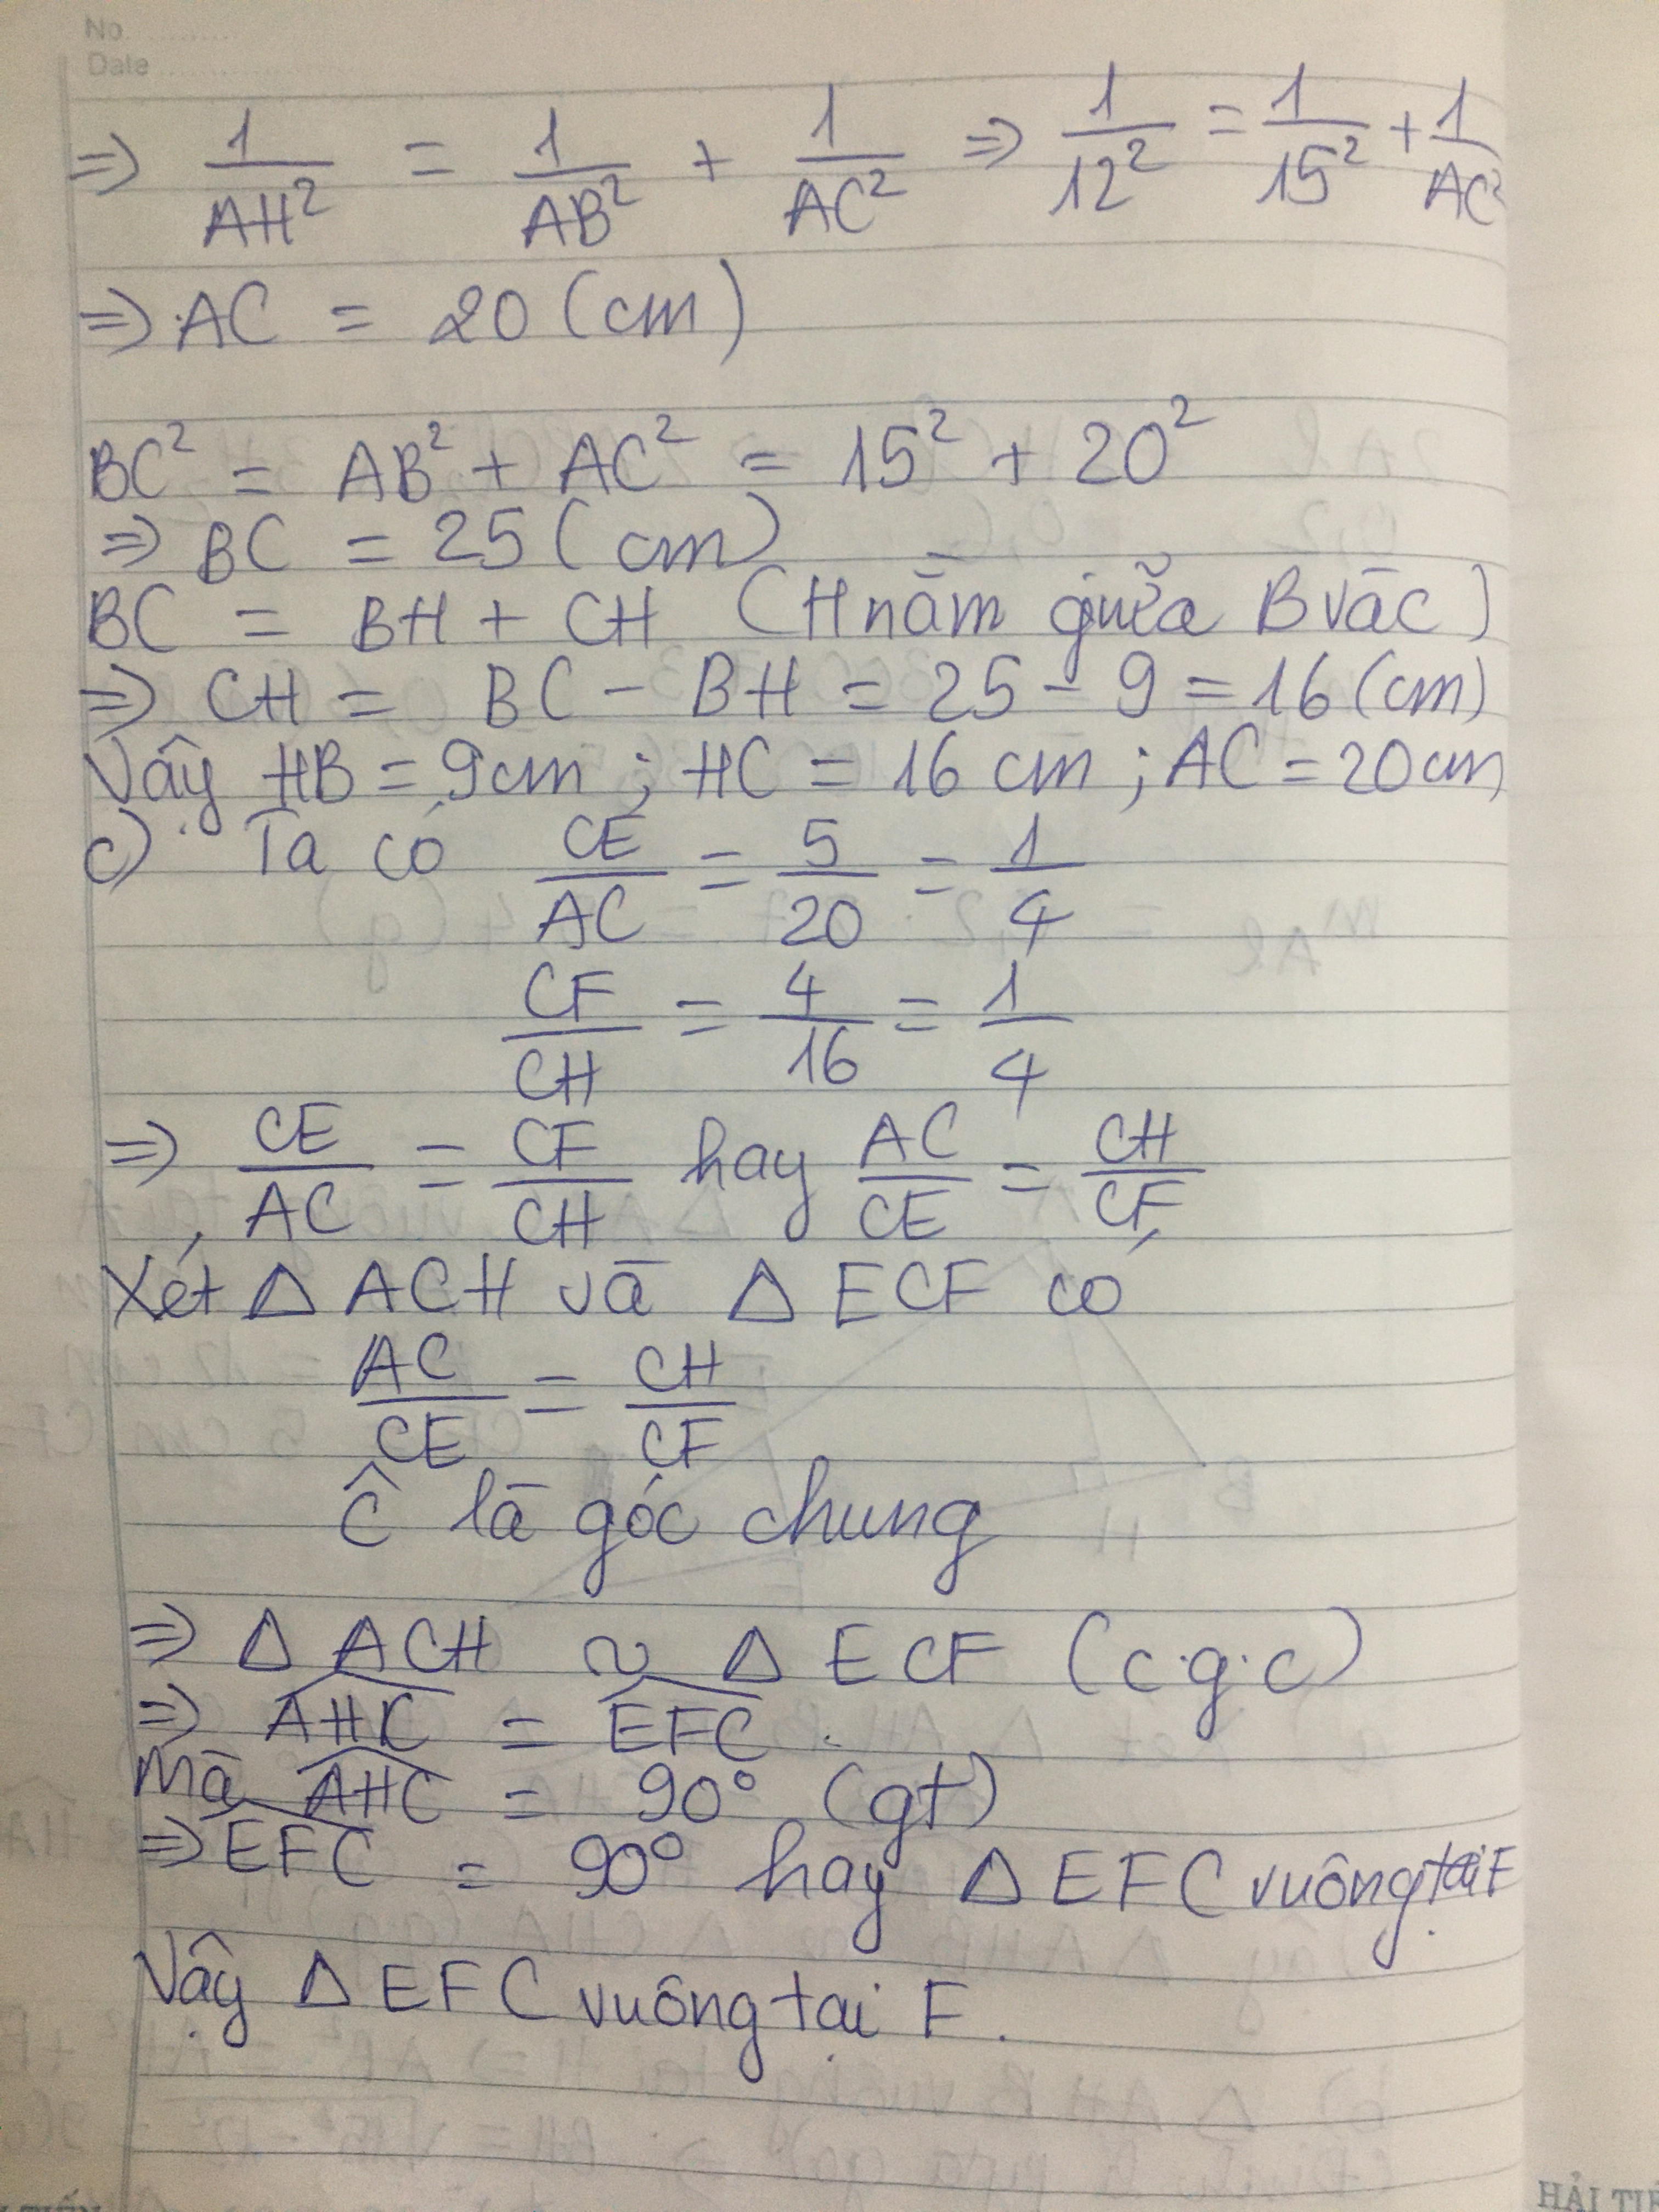 No.
Date
=> 1/AH² = 1/AB² + 1/AC² => 1/12² = 1/15² + 1/AC²
=> AC = 20 (cm)
BC² = AB² + AC² = 15² + 20²
=> BC = 25 (cm)
BC = BH + CH (H nằm giữa B và C)
=> CH = BC - BH = 25 - 9 = 16 (cm)
Vậy HB = 9cm ; HC = 16 cm ; AC = 20cm
c) Ta có CE/AC = 5/20 = 1/4
CF/CH = 4/16 = 1/4
=> CE/AC = CF/CH hay AC/CE = CH/CF
Xét Δ ACH và Δ ECF có
AC/CE = CH/CF
Ĉ là góc chung
=> Δ ACH ~ Δ ECF (c.g.c)
=> \widehat{AHC} = \widehat{EFC}.
Mà \widehat{AHC} = 90° (gt)
=> \widehat{EFC} = 90° hay Δ EFC vuông tại F
Vậy Δ EFC vuông tại F.